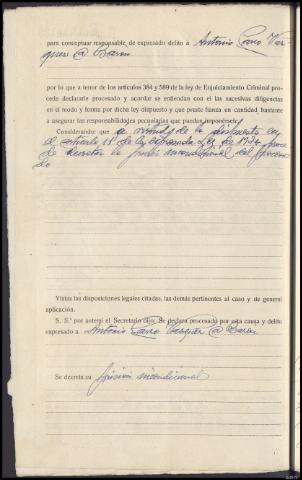 para conceptuar responsable de expresado delito a Antonio Caro Vaz-
quez @ Baron
por lo que a tenor de los artículos 384 y 589 de la ley de Enjuiciamiento Criminal pro-
cede declararle procesado y acordar se entiendan con el las sucesivas diligencias
en el modo y forma por dicha ley dispuesto y que preste fianza en cantidad bastante
a asegurar las responsabilidades pecuniarias que puedan imponérsele.
Considerando que a virtud de lo dispuesto en
el artículo 11 de la expresada Ley de 1934 proce-
de decretar la prisión incondicional del procesa-
do
Vistas las disposiciones legales citadas, las demás pertinentes al caso y de general
aplicación.
S. S.ª por antemí el Secretario dijo: Se declara procesado por esta causa y delito
expresado a Antonio Caro Vazquez @ Baron
Se decreta su prisión incondicional